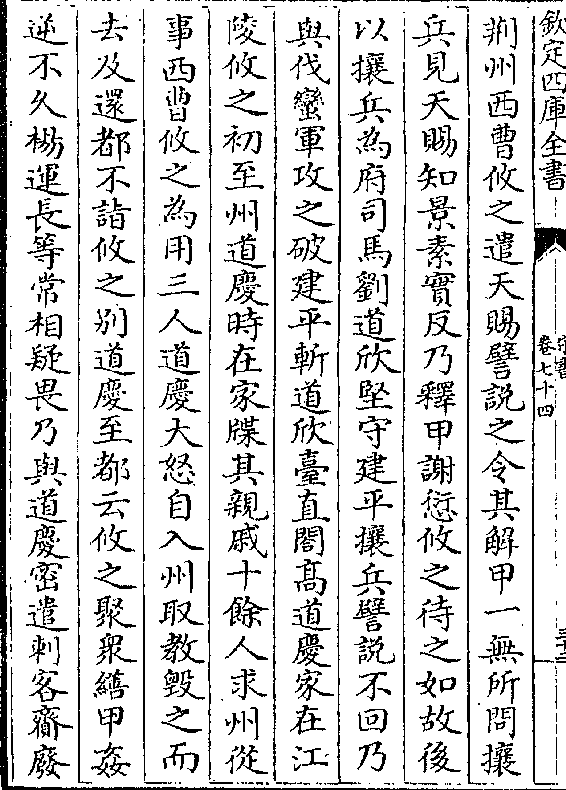 欽定四庫全書
宋書
卷七十四
荆州西曹攸之遣天賜譬説之令其解甲一無所問攘
兵見天賜知景素實反乃釋甲謝愆攸之待之如故後
以攘兵為府司馬劉道欣堅守建平攘兵譬説不回乃
與伐蠻軍攻之破建平斬道欣臺直閤髙道慶家在江
陵攸之初至州道慶時在家牒其親戚十餘人求州從
事西曹攸之為用三人道慶大怒自入州取教毁之而
去及還都不詣攸之别道慶至都云攸之聚衆繕甲姦
逆不久楊運長等常相疑畏乃與道慶密遣刺客齎廢